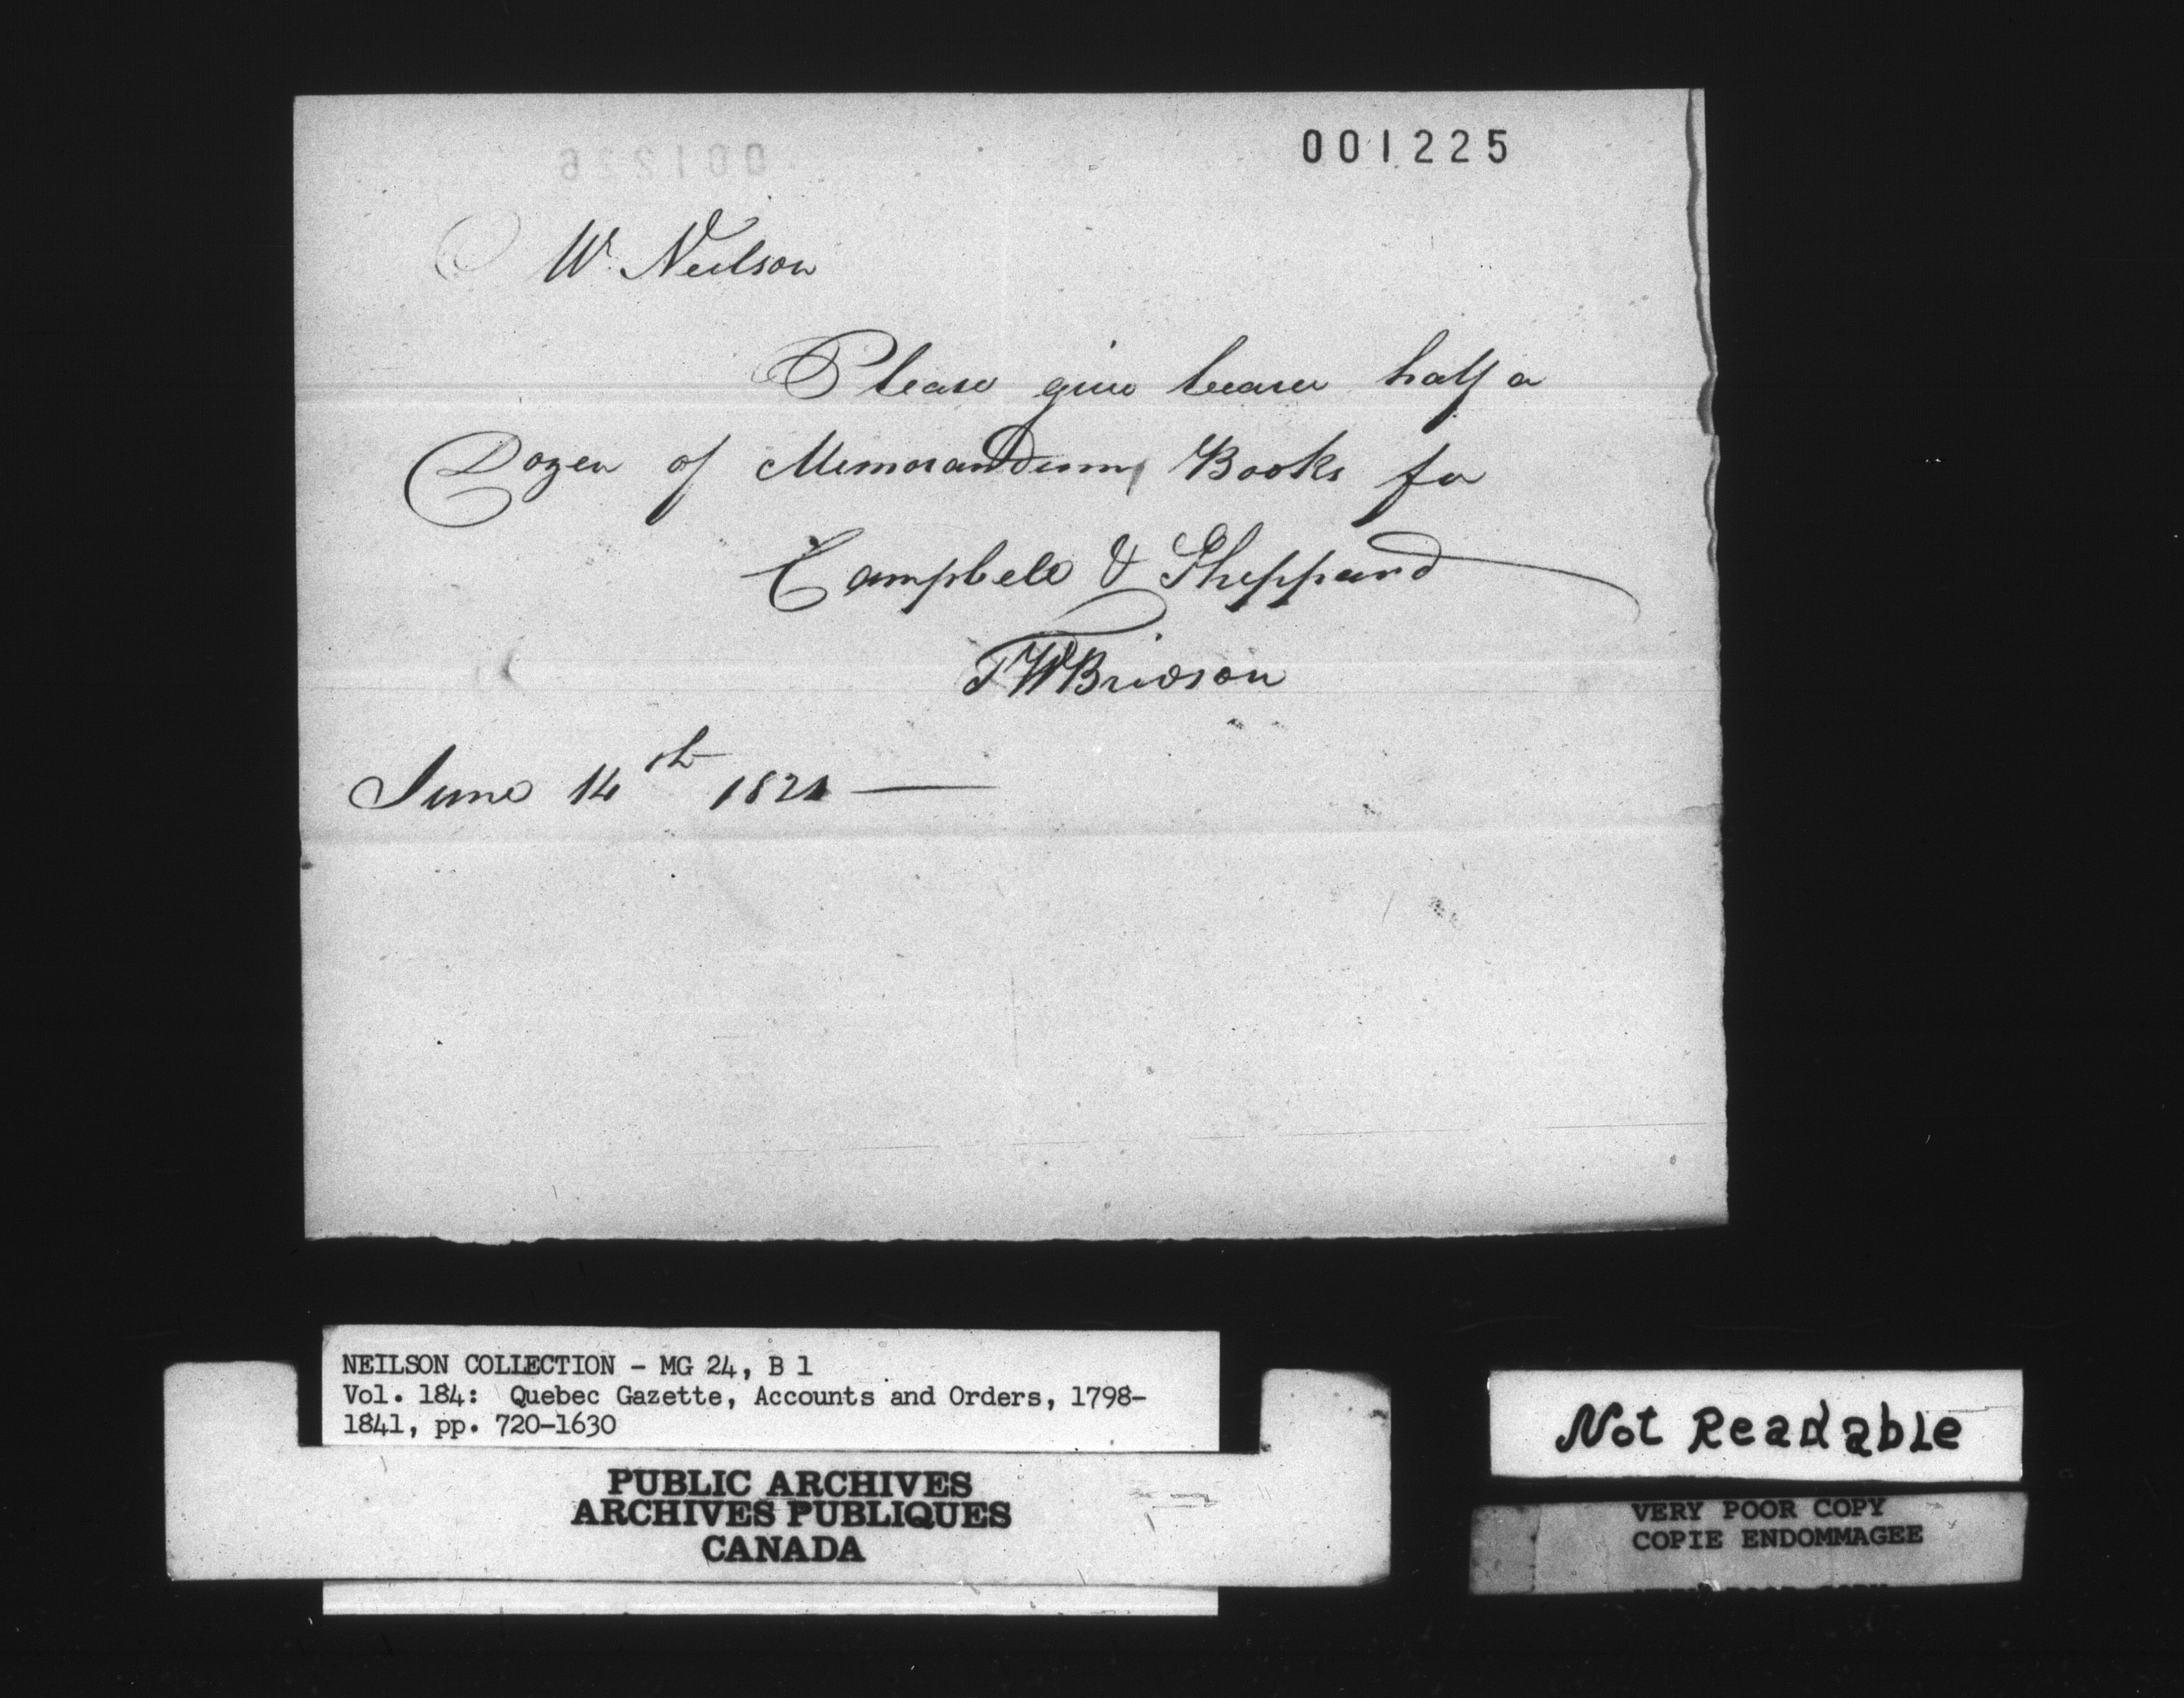 001225
W. Neilson
Please give bearer half a
Dozen of Memorandum Books for
Campbell & Sheppard
TWBridson
June 14th 1821
NEILSON COLLECTION - MG 24, B 1
Vol. 184: Quebec Gazette, Accounts and Orders, 1798-
1841, pp. 720-1630
PUBLIC ARCHIVES
ARCHIVES PUBLIQUES
CANADA
Not Readable
VERY POOR COPY
COPIE ENDOMMAGEE